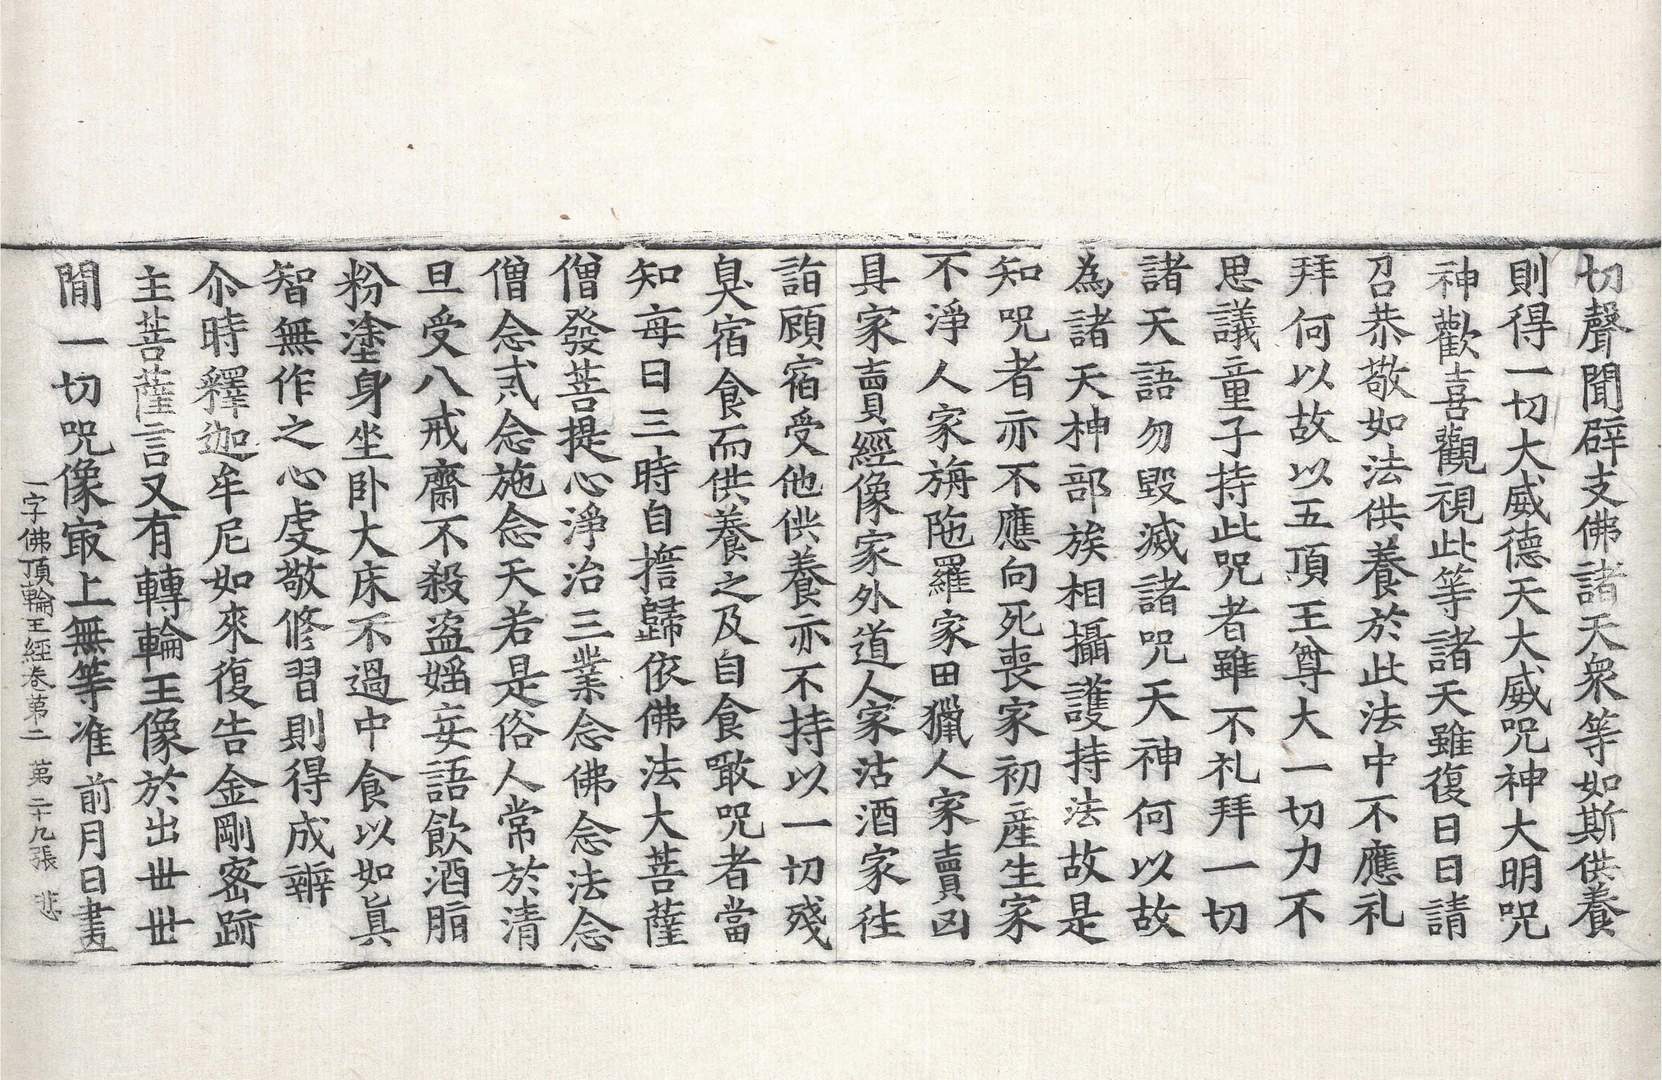 切聲聞辟支佛諸天衆等如斯供養
則得一切大威德天大威呪神大明呪
神歡喜觀視此等諸天雖復日日請
召恭敬如法供養於此法中不應礼
拜何以故以五頂王尊大一切力不
思議童子持此呪者雖不礼拜一切
諸天語勿毀滅諸呪天神何以故
為諸天神部族相攝護持法故是
知呪者亦不應向死喪家初產生家
不淨人家旃陁羅家田獵人家賣凶
具家賣經像家外道人家沽酒家往
詣顧宿受他供養亦不持以一切殘
臭宿食而供養之及自食噉呪者當
知每日三時自擔歸依佛法大菩薩
僧發菩提心淨治三業念佛念法念
僧念戒念施念天若是俗人常於清
旦受八戒齋不殺盗婬妄語飲酒脂
粉塗身坐卧大床不過中食以如真
智無作之心虔敬修習則得成辦
尒時釋迦牟尼如來復告金剛密跡
主菩薩言又有轉輪王像於出丗丗
間一切呪像㝡上無等准前月日畫
一字佛頂輪王經卷第二　第二十九張　悲